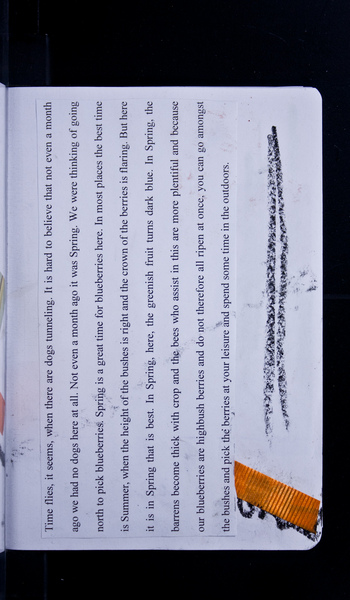 Time flies, it seems, when there are dogs tunneling. It is hard to believe that not even a month
ago we had no dogs here at all. Not even a month ago it was Spring. We were thinking of going
north to pick blueberries. Spring is a great time for blueberries here. In most places the best time
is Summer, when the height of the bushes is right and the crown of the berries is flaring. But here
it is in Spring that is best. In Spring, here, the greenish fruit turns dark blue. In Spring, the
barrens become thick with crop and the bees who assist in this are more plentiful and because
our blueberries are highbush berries and do not therefore all ripen at once, you can go amongst
the bushes and pick the berries at your leisure and spend some time in the outdoors.